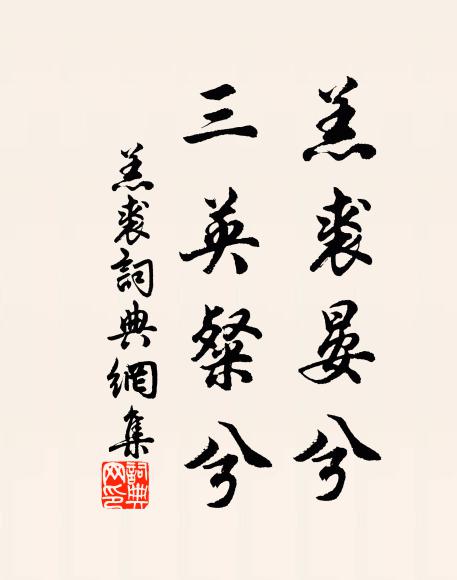 羔裘晏兮
三英粲兮
羔裘詞典網集
詞典網印